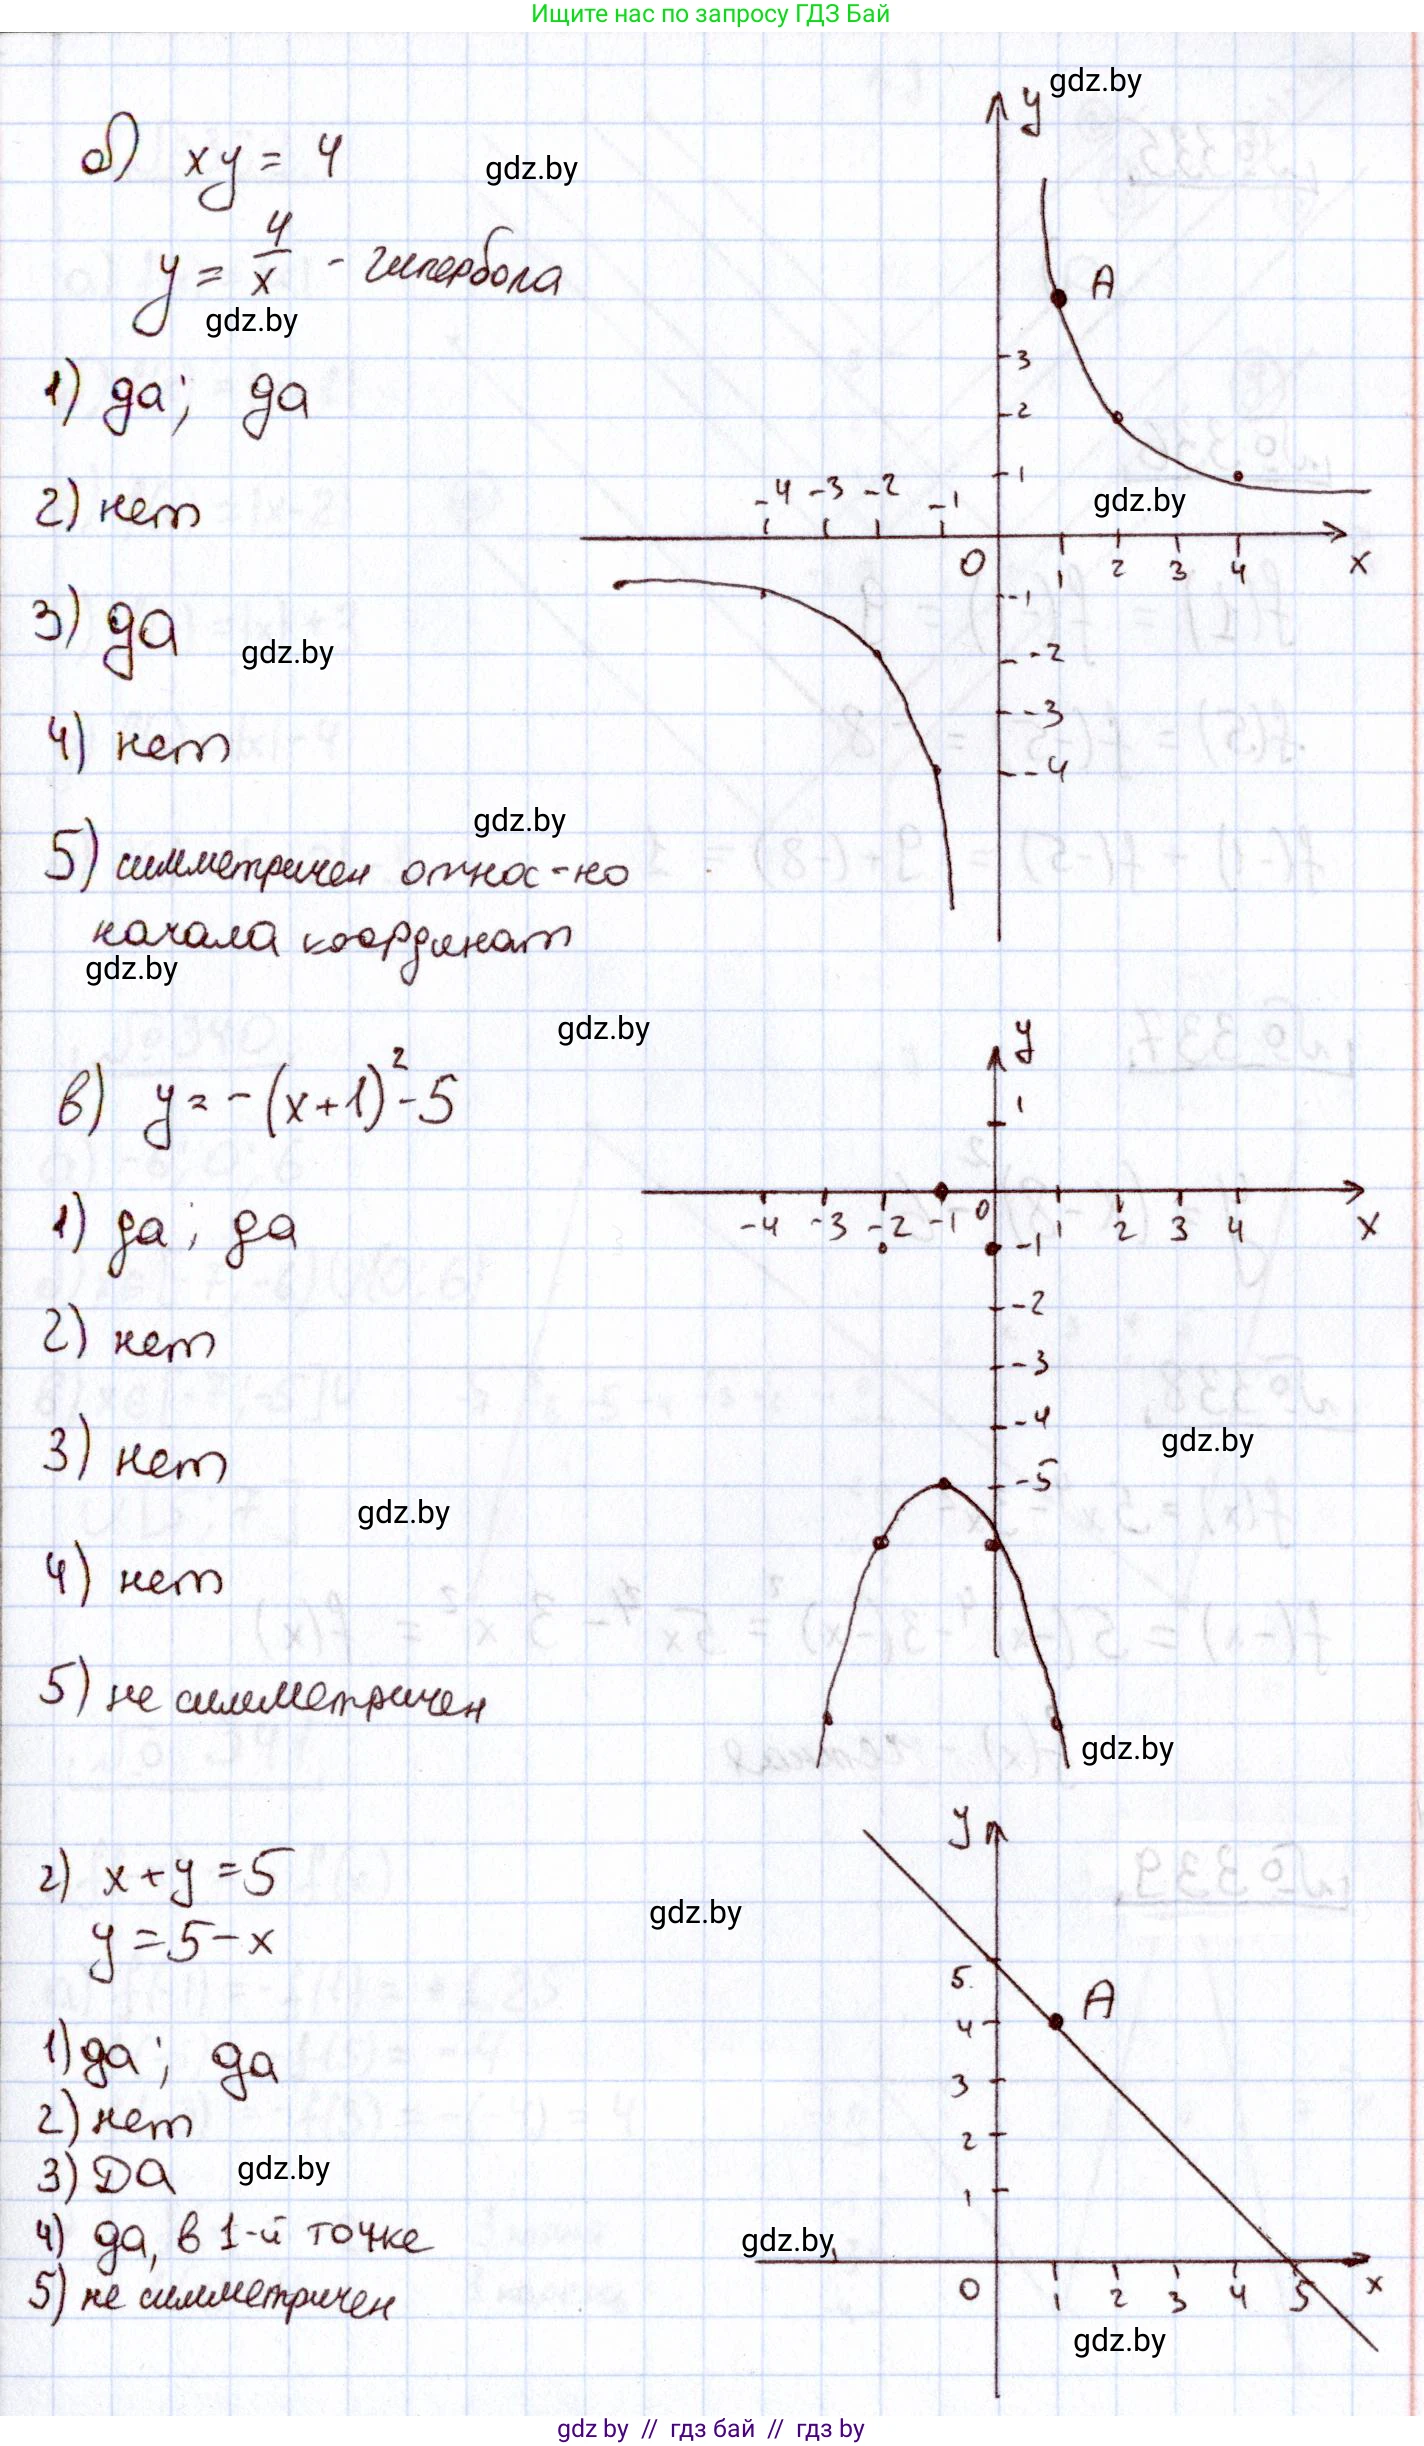 Ищите нас по запросу ГДЗ Бай
gdz.by
б) xy = 4
gdz.by
y = 4/x - гипербола
gdz.by
1) да; да
2) нет
3) да
gdz.by
4) нет
gdz.by
5) симметричен относ-но
начала координат
gdz.by
y
A
3
2
1
gdz.by
-4 -3 -2 -1
0 1 2 3 4 x
-1
-2
-3
-4
gdz.by
в) y = -(x+1)² - 5
1) да; да
2) нет
3) нет
gdz.by
4) нет
5) не симметричен
y
1
-4 -3 -2 -1 0 1 2 3 4 x
-1
-2
-3
-4
gdz.by
-5
gdz.by
г) x + y = 5
gdz.by
y = 5 - x
1) да; да
2) нет
3) ДА
gdz.by
4) да, в 1-й точке
5) не симметричен
y
5
A
4
3
2
1
gdz.by
0 1 2 3 4 5 x
gdz.by
gdz by // гдз бай // гдз by